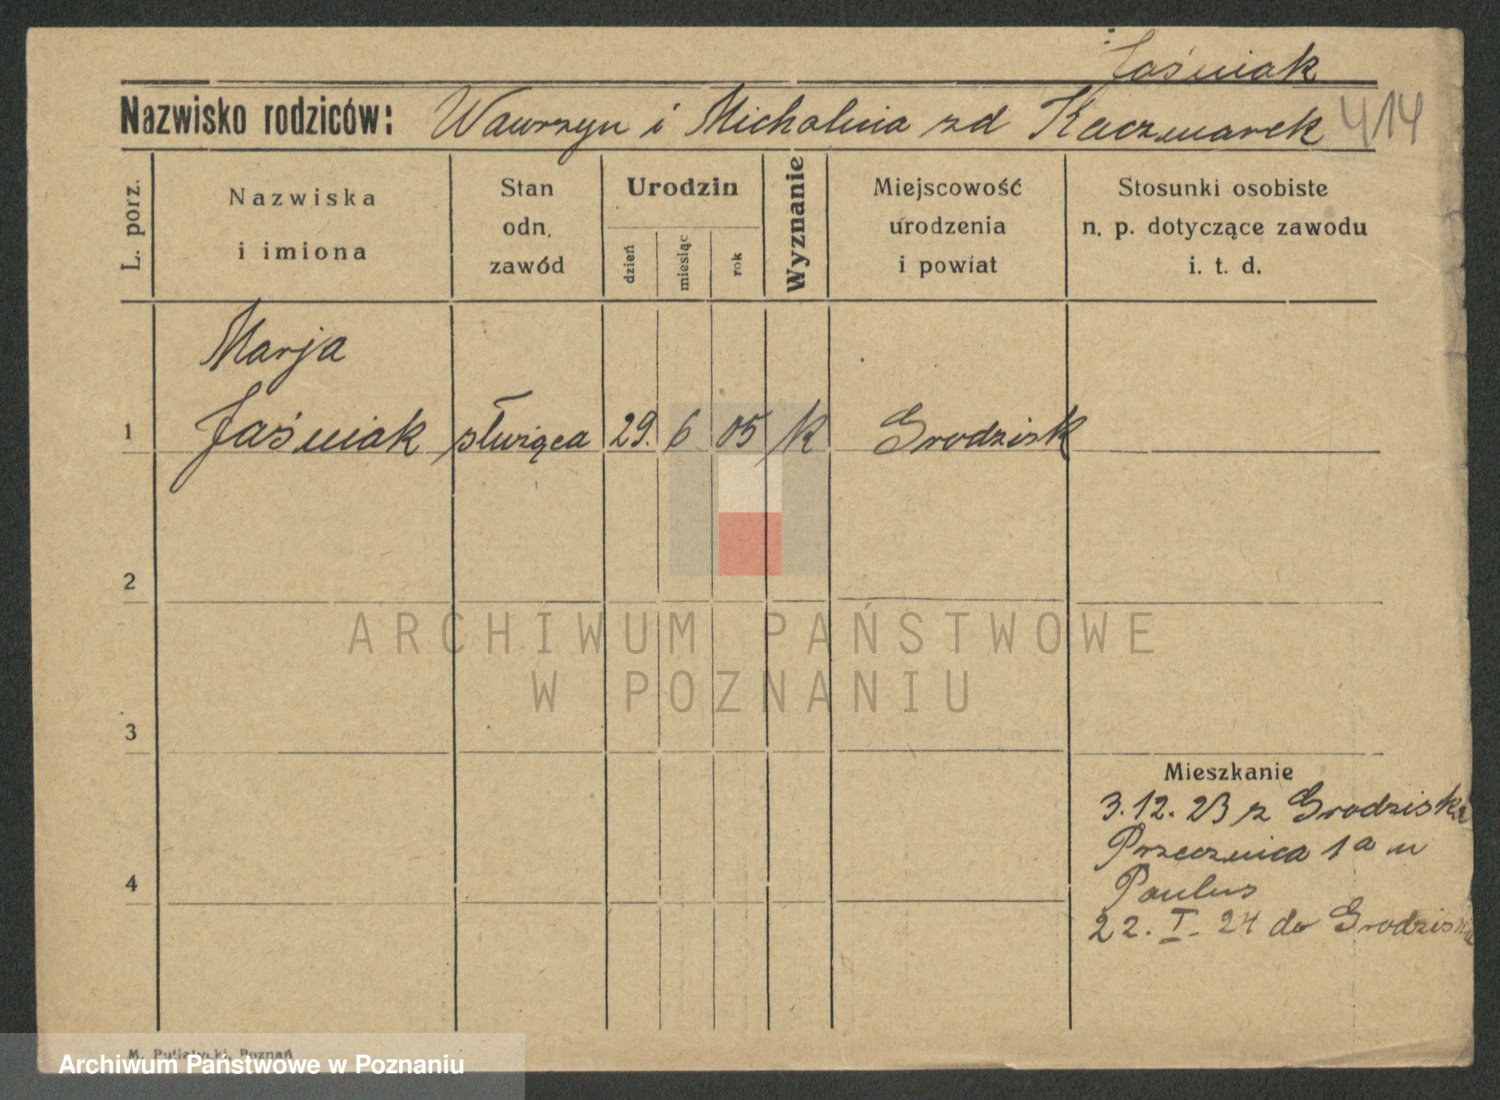 Jaśniak
Nazwisko rodziców: Wawrzyn i Michalina zd Kaczmarek 414
L. porz.
Nazwiska
i imiona
Stan
odn.
zawód
Urodzin
dzień
miesiąc
rok
Wyznanie
Miejscowość
urodzenia
i powiat
Stosunki osobiste
n. p. dotyczące zawodu
i. t. d.
Marja
1 Jaśniak służąca 29. 6 05 k Grodzisk
2
ARCHIWUM PAŃSTWOWE
W POZNANIU
3
Mieszkanie
3.12.23 z Grodziska
Przecznica 1a u
4
Paulus
22. I. 24 do Grodziska
M. Putiatycki, Poznań
Archiwum Państwowe w Poznaniu